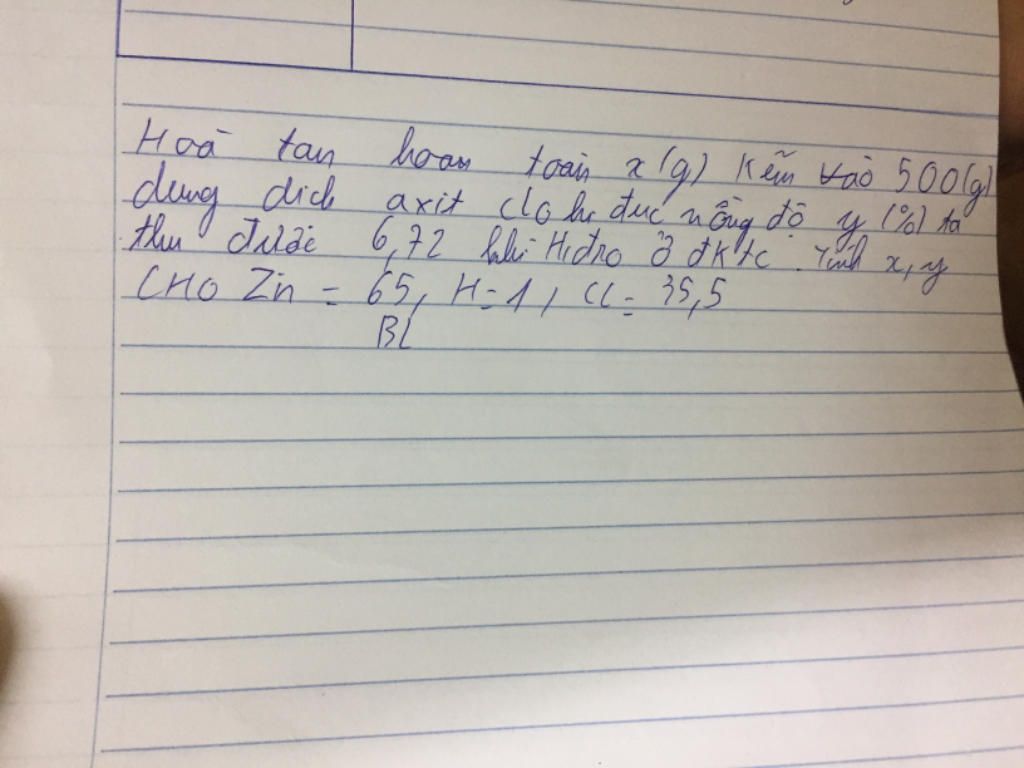 Hoà tan hoan toàn x(g) Kẽm vào 500(g)
dung dich axit clo hi đuc nồng độ y (%) ta
thu được 6,72 khi Hiđno ở đktc. Tính x, y
CHO Zin = 65, H = 1, Cl = 35,5
BL